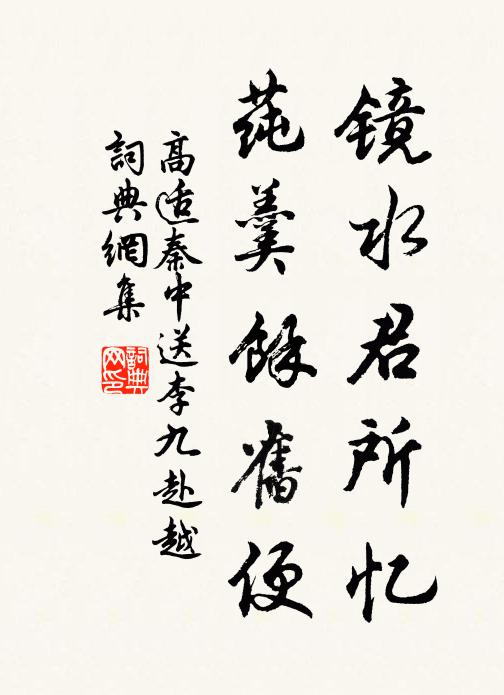 镜水君所忆
莼羹餘舊便
高适秦中送李九赴越
詞典網集
詞典网印